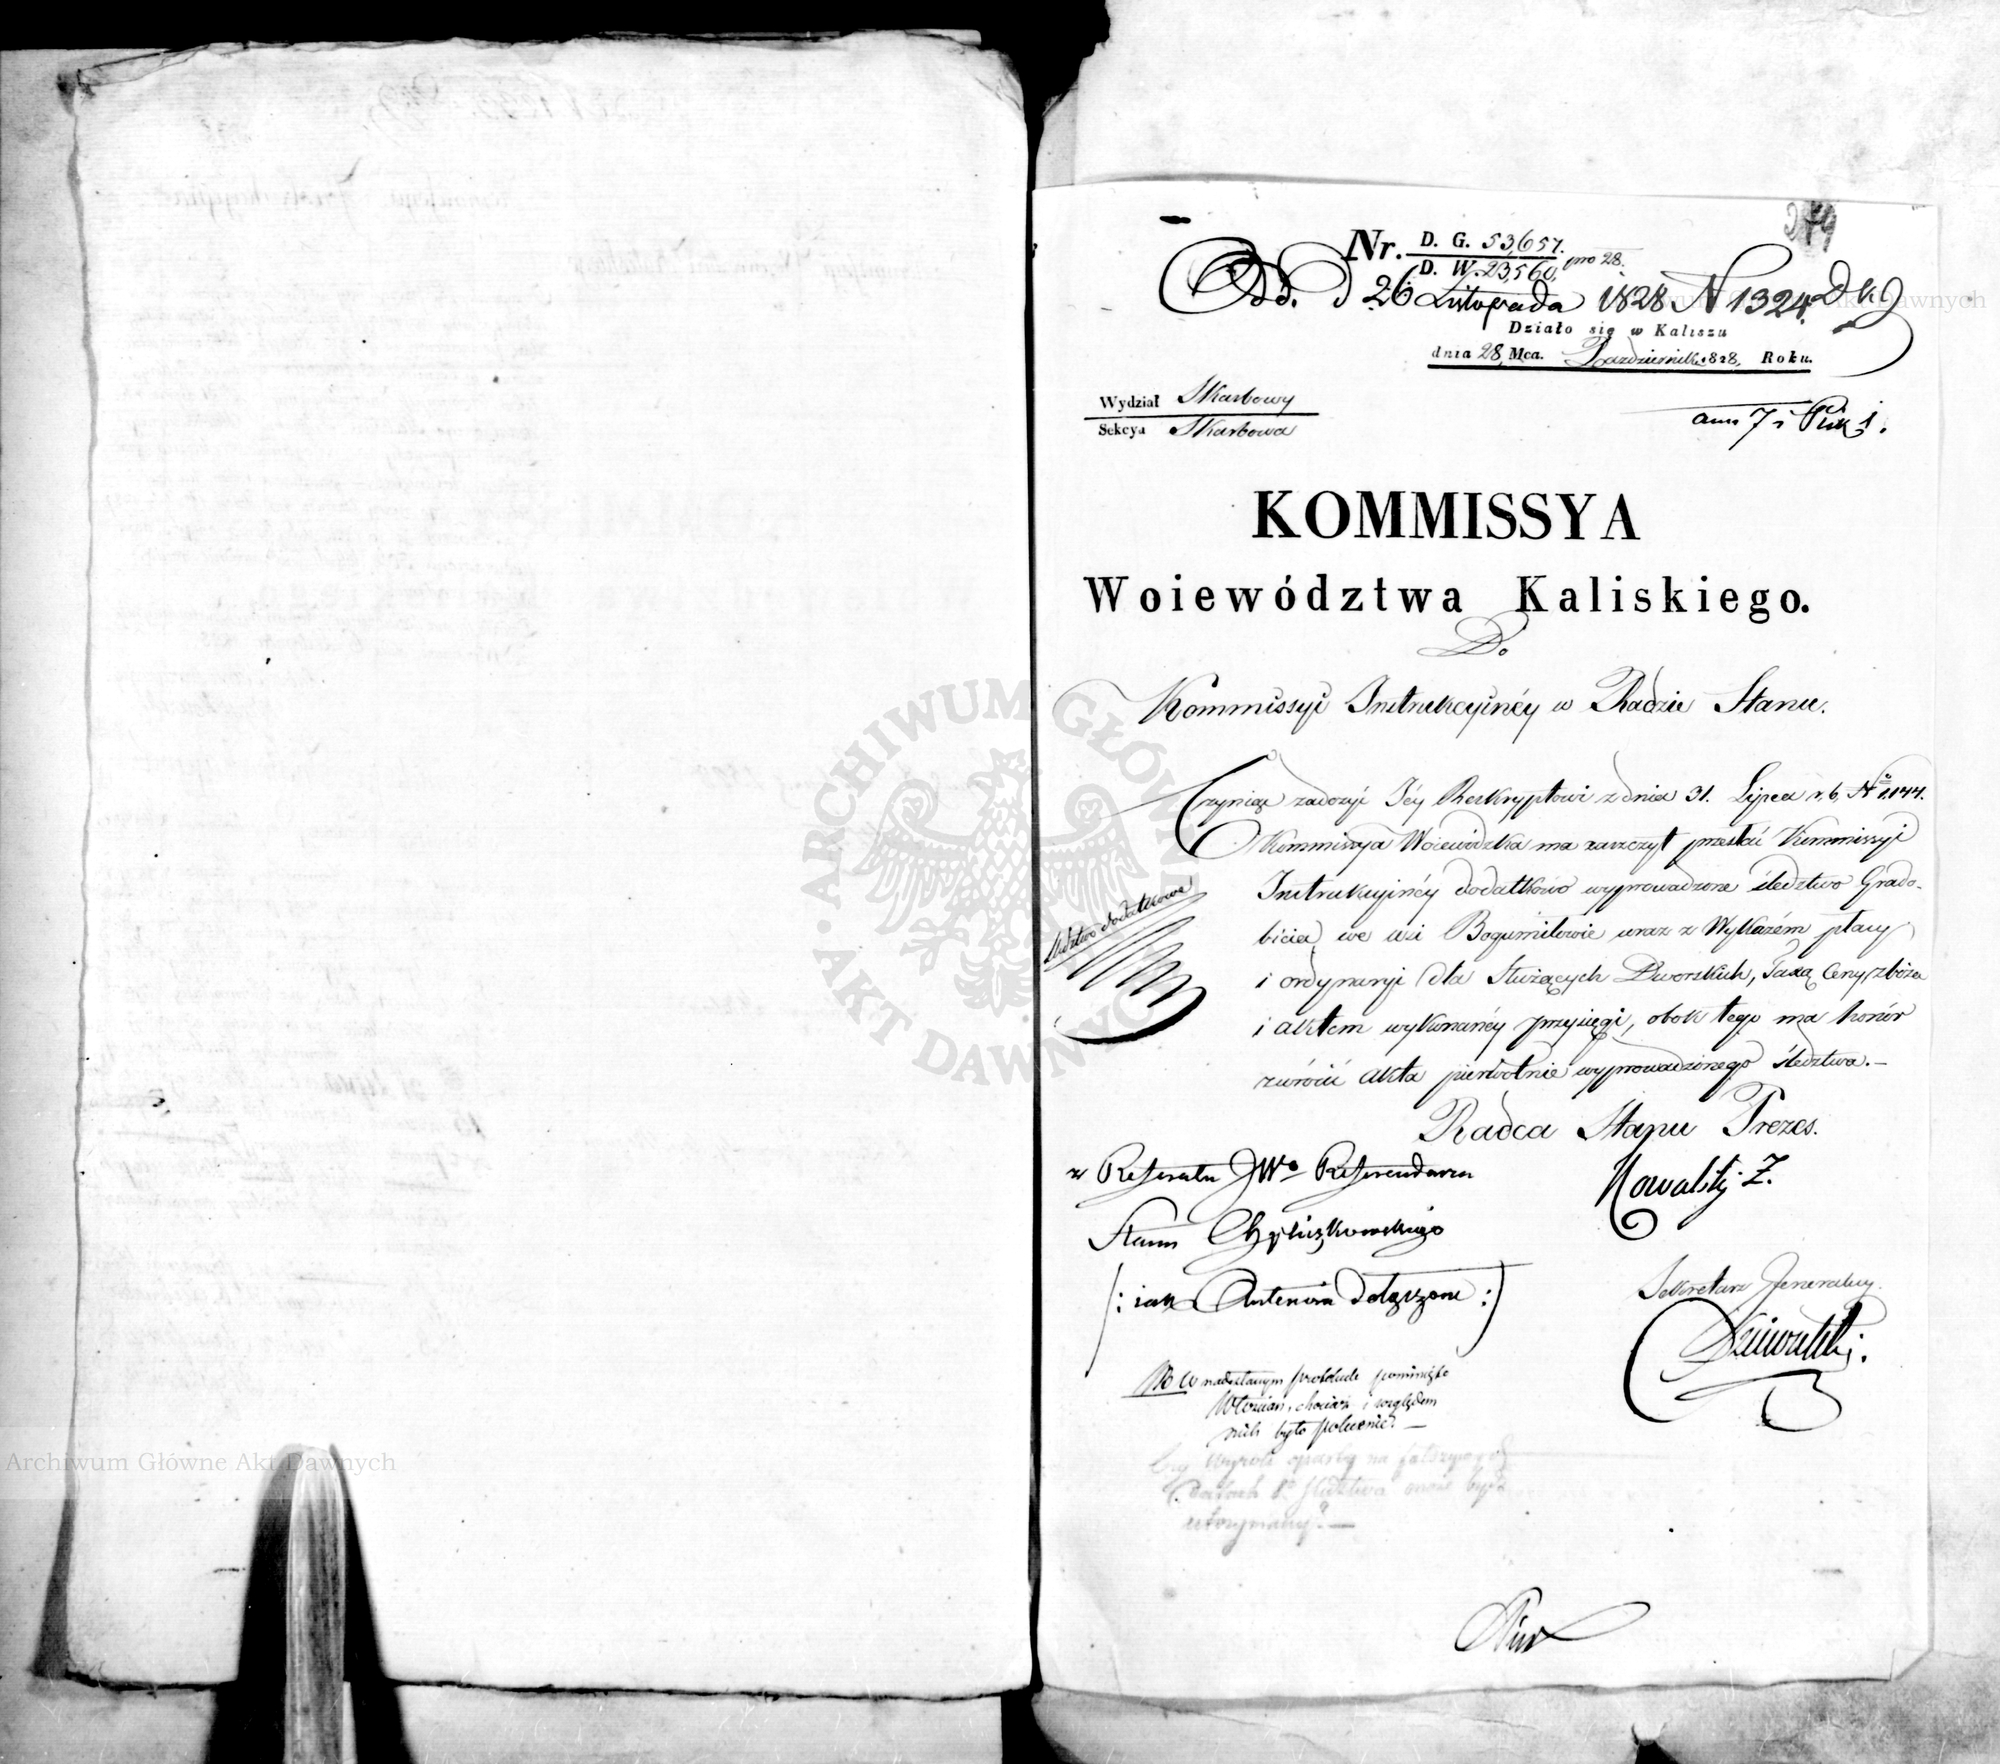 Nr. D. G. 53,657. pro 28.
D. W. 23,560.
Odd. d 26 Listopada 1828 N 1324.
Działo się w Kaliszu
dnia 28 Mca. Października 1828, Roku.
Wydział Skarbowy
Sekcya Skarbowa
ann 7
KOMMISSYA
Woiewództwa Kaliskiego.
Do
Kommissyi Instrukcyinéy w Radzie Stanu.
Czyniąc zadosyć Jéy Reskryptowi z dnia 31. Lipca r. b. No 1,144.
Kommissya Woiewódzka ma zaszczyt przesłać Kommissyi
Instrukcyinéy dodatkowo wyprowadzone śledztwo Grado-
bicia we wsi Bogumiłowie wraz z Wykazém płacy
i ordynaryi dla Służących Dworskich, Taxą Ceny zboża
i aktem wykonanéy przysięgi, obok tego ma honór
zwrócić akta pierwotnie wyprowadzonego śledztwa.—
śledztwo dodatkowe
Radca Stanu Prezes.
z Referatu JWo Referendarza
Stanu
(: iak Antenora dołączone :)
Sekretarz Jeneralny.
NB W nadesłanym protokule pominięto
Włościan, chociaż i względem
nich było polecenie.—
Czy wyrok oparty na fałszywych
datach śledztwa może być
utrzymany?—
Archiwum Główne Akt Dawnych
Archiwum Główne Akt Dawnych
ARCHIWUM GŁÓWNE AKT DAWNYCH